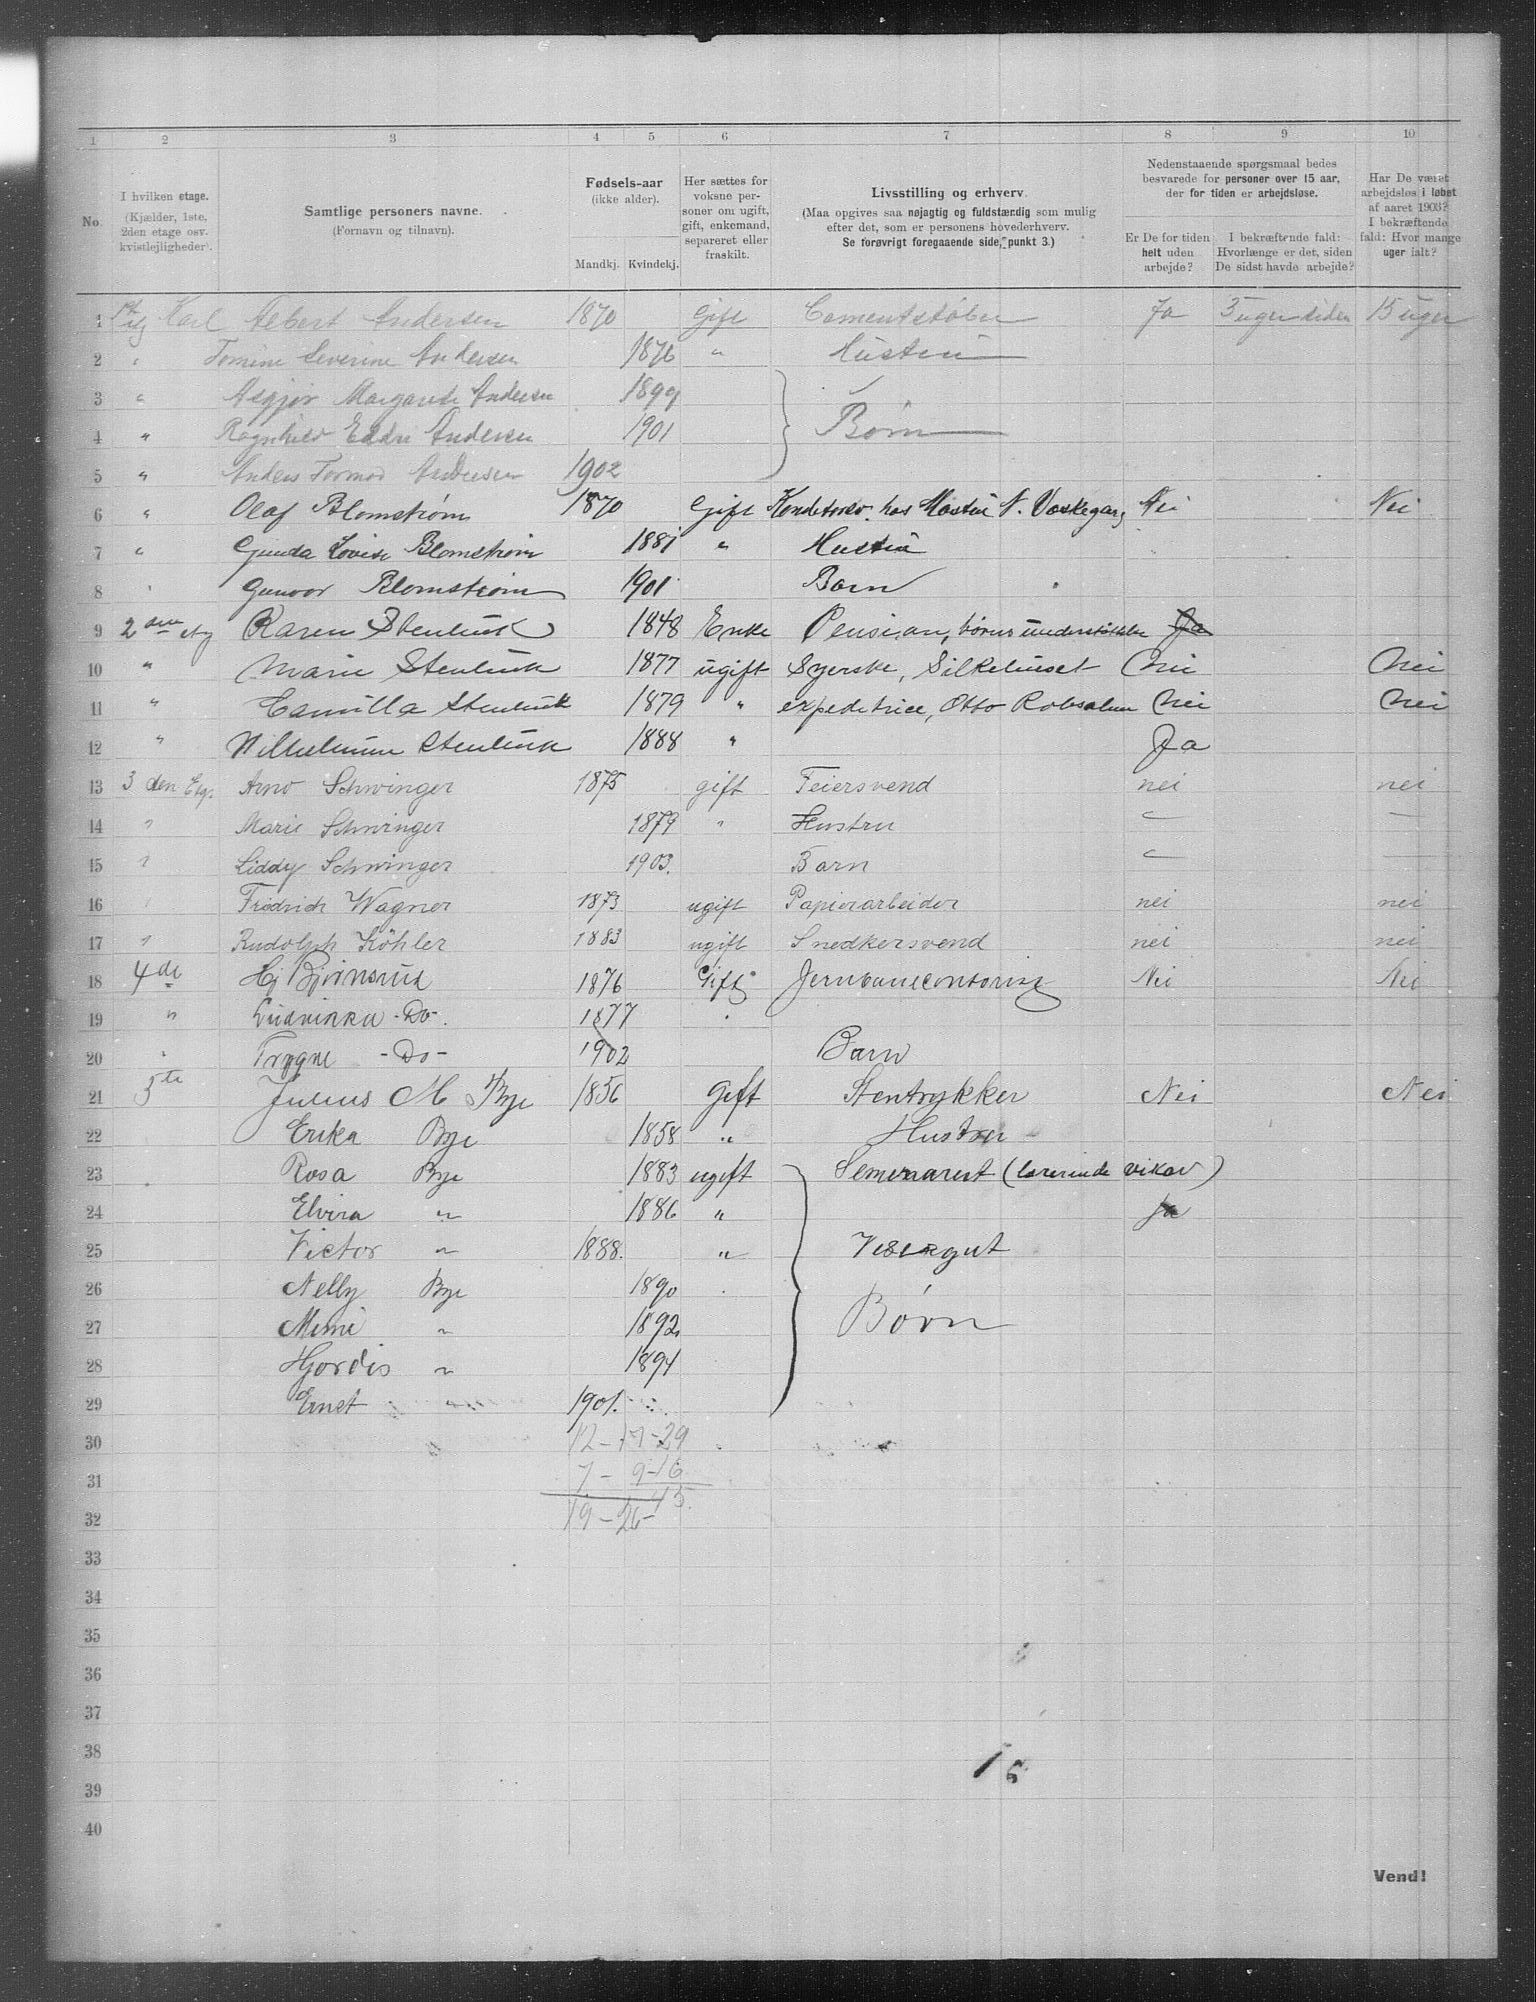 1 2 3 4 5 6 7 8 9 10
No.
I hvilken etage.
(Kjælder, 1ste,
2den etage osv.
kvistlejligheder).
Samtlige personers navne.
(Fornavn og tilnavn).
Fødsels-aar
(ikke alder).
Mandkj. Kvindekj.
Her sættes for
voksne per-
soner om ugift,
gift, enkemand,
separeret eller
fraskilt.
Livsstilling og erhverv.
(Maa opgives saa nøjagtig og fuldstændig som mulig
efter det, som er personens hovederhverv.
Se forøvrigt foregaaende side, punkt 3.)
Nedenstaaende spørgsmaal bedes
besvarede for personer over 15 aar,
der for tiden er arbejdsløse.
Er De for tiden
helt uden
arbejde?
I bekræftende fald:
Hvorlænge er det, siden
De sidst havde arbejde?
Har De været
arbejdsløs i løbet
af aaret 1903?
I bekræftende
fald: Hvor mange
uger ialt?
1 Karl Albert Andersen 1870 Gift Cementstøber Ja 3 uger siden 15 uger
2 " Tomine Severine Andersen 1876 " Hustru
3 " Asgjør Margarete Andersen 1899
4 " Ragnhild Andersen 1901 Børn
5 " Anders Tormod Andersen 1902
6 " Olaf Blomstrøm 1870 Gift hos N. Nei Nei
7 " Gunda Lovise Blomstrøm 1881 " Hustru
8 " Gunvor Blomstrøm 1901 Barn
9 2den etg Karen Stenbuk 1848 Enke Pension, Ja
10 " Marie Stenbuk 1877 ugift Syerske, Silkehuset Nei Nei
11 " Camilla Stenbuk 1879 " expeditrice, Otto Robsahm Nei Nei
12 " Wilhelmine Stenbuk 1888 " Ja
13 3 den Etg. Arno Schwinger 1875 gift Feiersvend nei nei
14 " Marie Schwinger 1879 " Hustru — —
15 " Liddy Schwinger 1903. Barn — —
16 " Fredrich Wagner 1873 ugift Papierarbeider nei nei
17 " Rudolph Köhler 1883 ugift Snedkersvend nei nei
18 4de Hj Bjørnsrud 1876 Gift Jernbanecontorist Nei Nei
19 " -Do-. 1877
20 " Trygve -Do- 1902 Barn
21 5te Julius M Bye 1856 Gift Stentrykker Nei Nei
22 Erika Bye 1858 " Hustru
23 Rosa Bye 1883 ugift (lærerinde vikar)
24 Elvira " 1886 " Ja
25 Victor " 1888. " Visergut
26 Nelly Bye 1890
27 Mimi " 1892 Børn
28 Hjordis " 1894
29 Ernst " 1901.
30 12-17-29
31 7-9-16
32 19-26-45.
33
34
35
36
37
38
39
40
Vend!